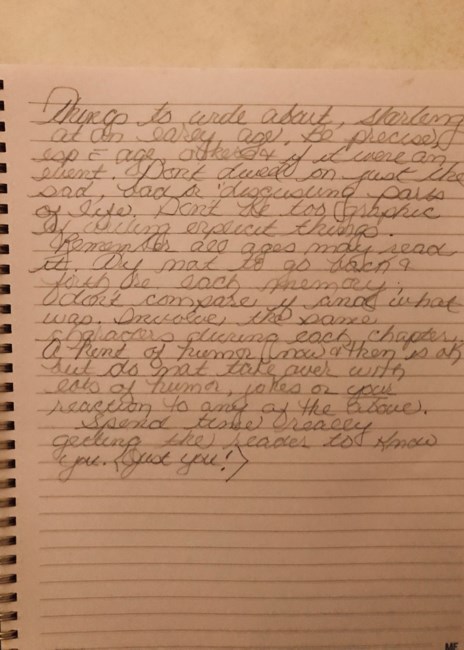 Things to write about, starting
at an early age. Be precise,
esp = age, others & if it were an
event. Don't dwell on just the
sad, bad or disgusting parts
of life. Don't be too graphic
by writing explicit things.
Remember all ages may read
it. Try not to go back &
forth each memory.
don't compare and what
was. Involve the same
characters during each chapter.
A hint of humor now & then is ok
but do not take over with
lots of humor, jokes or your
reaction to any of the above.
Spend time really
getting the reader to know
you. (Just you!)
ME